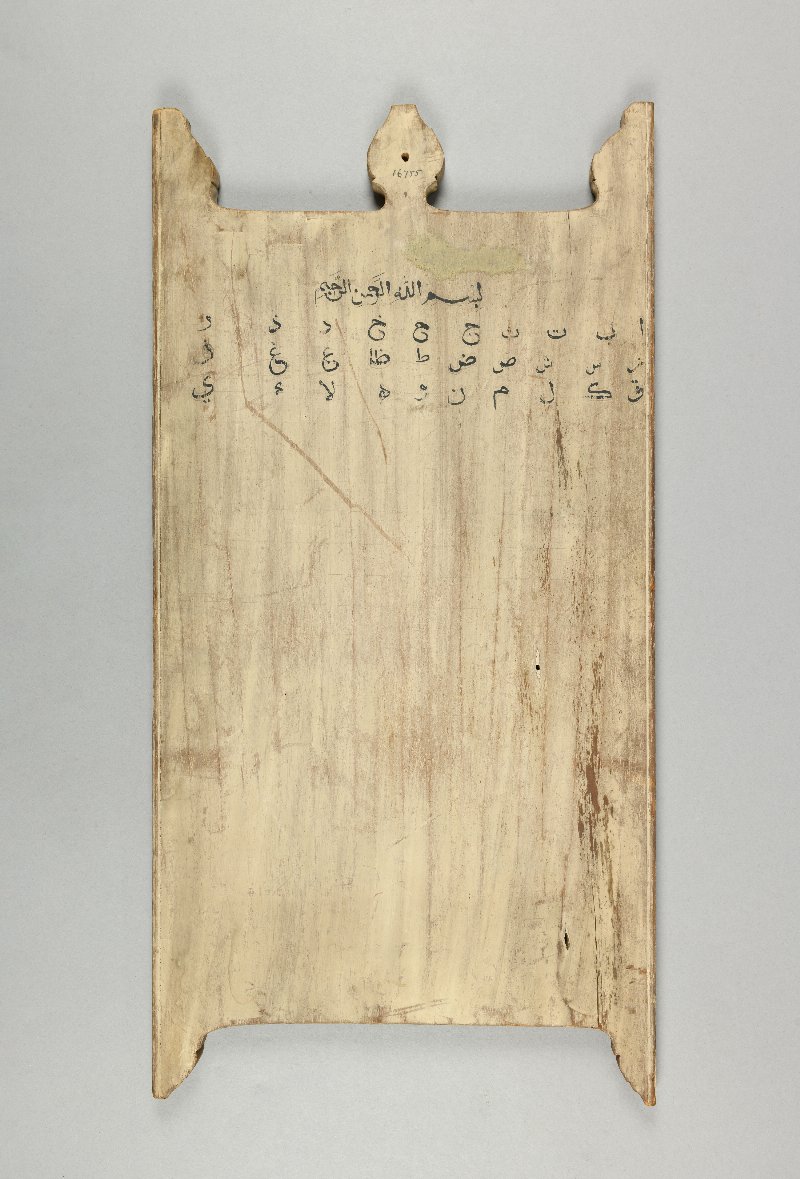 16755
بسم الله الرحمن الرحيم
ا ب ت ث ج ح خ د ذ ر
ز س ش ص ض ط ظ ع غ ف
ق ك ل م ن و ه لا ء ي